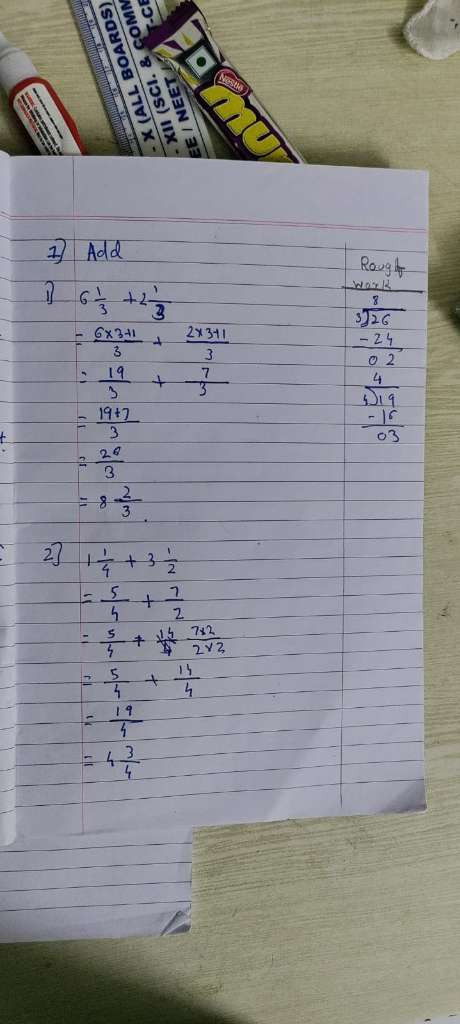 X (ALL BOARDS)
XII (SCI. & COMM
EE / NEET /
Nestle
MUN
1) Add
1) 6 1/3 + 2 1/3
= 6×3+1/3 + 2×3+1/3
= 19/3 + 7/3
= 19+7/3
= 26/3
= 8 2/3.
2) 1 1/4 + 3 1/2
= 5/4 + 7/2
= 5/4 + 7×2/2×2
= 5/4 + 14/4
= 19/4
= 4 3/4
Rough
work
8
3)26
- 24
02
4
4)19
- 16
03